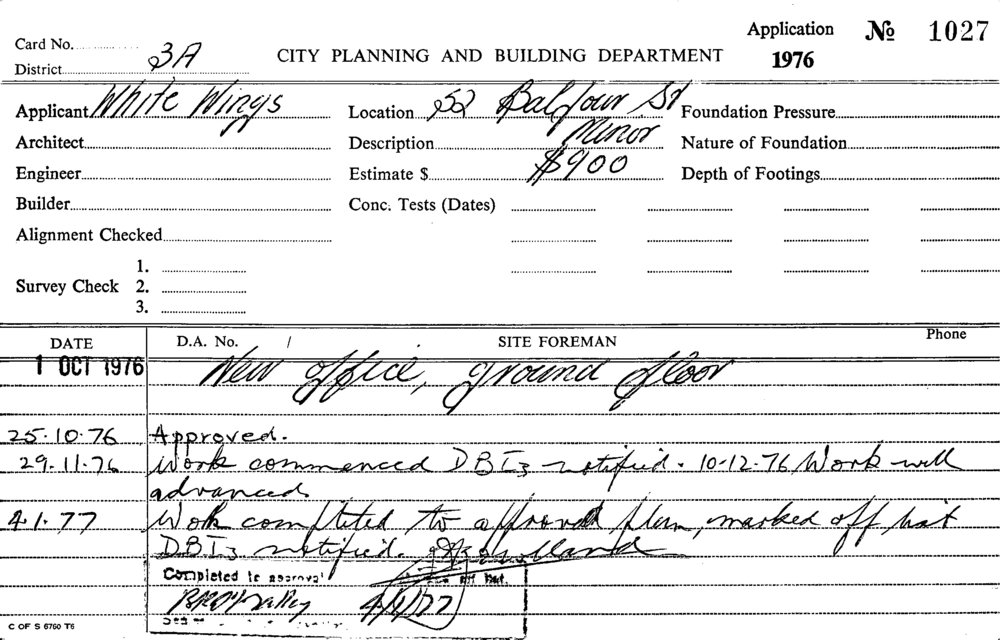 Application № 1027
1976
Card No.
District 3A
CITY PLANNING AND BUILDING DEPARTMENT
Applicant White Wings
Location 52 Balfour St
Foundation Pressure
Architect
Description Minor
Nature of Foundation
Engineer
Estimate $ $900
Depth of Footings
Builder
Conc. Tests (Dates)
Alignment Checked
Survey Check 1.
2.
3.
DATE D.A. No. / SITE FOREMAN Phone
1 OCT 1976 New office, ground floor
25.10.76 Approved.
29.11.76 Work commenced DBI3 notified. 10.12.76 Work well
advanced
4.1.77 Work completed to approved plan, marked off
DBI3 notified.
Completed to approval
4/1/77
C OF S 6760 T6